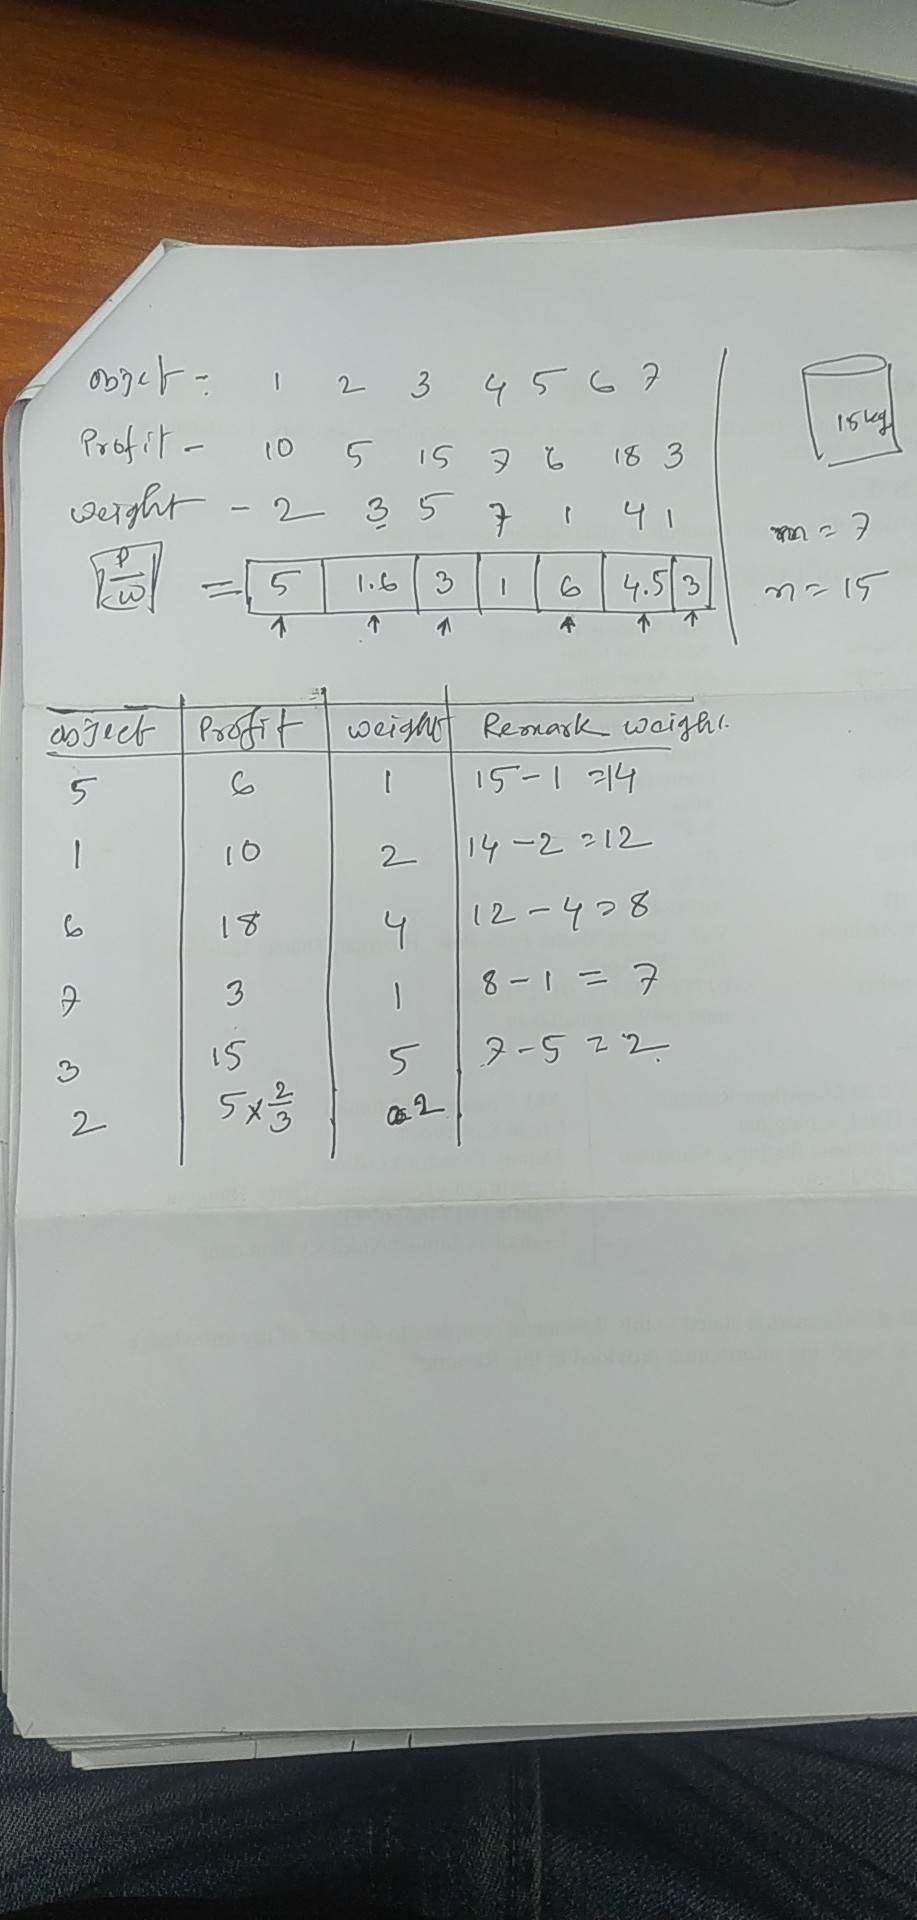 object = 1 2 3 4 5 6 7
Profit - 10 5 15 7 6 18 3
weight - 2 3 5 7 1 4 1
P/w = 5 1.6 3 1 6 4.5 3
15kg
m = 7
n = 15
object Profit weight Remark weight.
5 6 1 15-1=14
1 10 2 14-2=12
6 18 4 12-4=8
7 3 1 8-1=7
3 15 5 7-5=2.
2 5×2/3 2